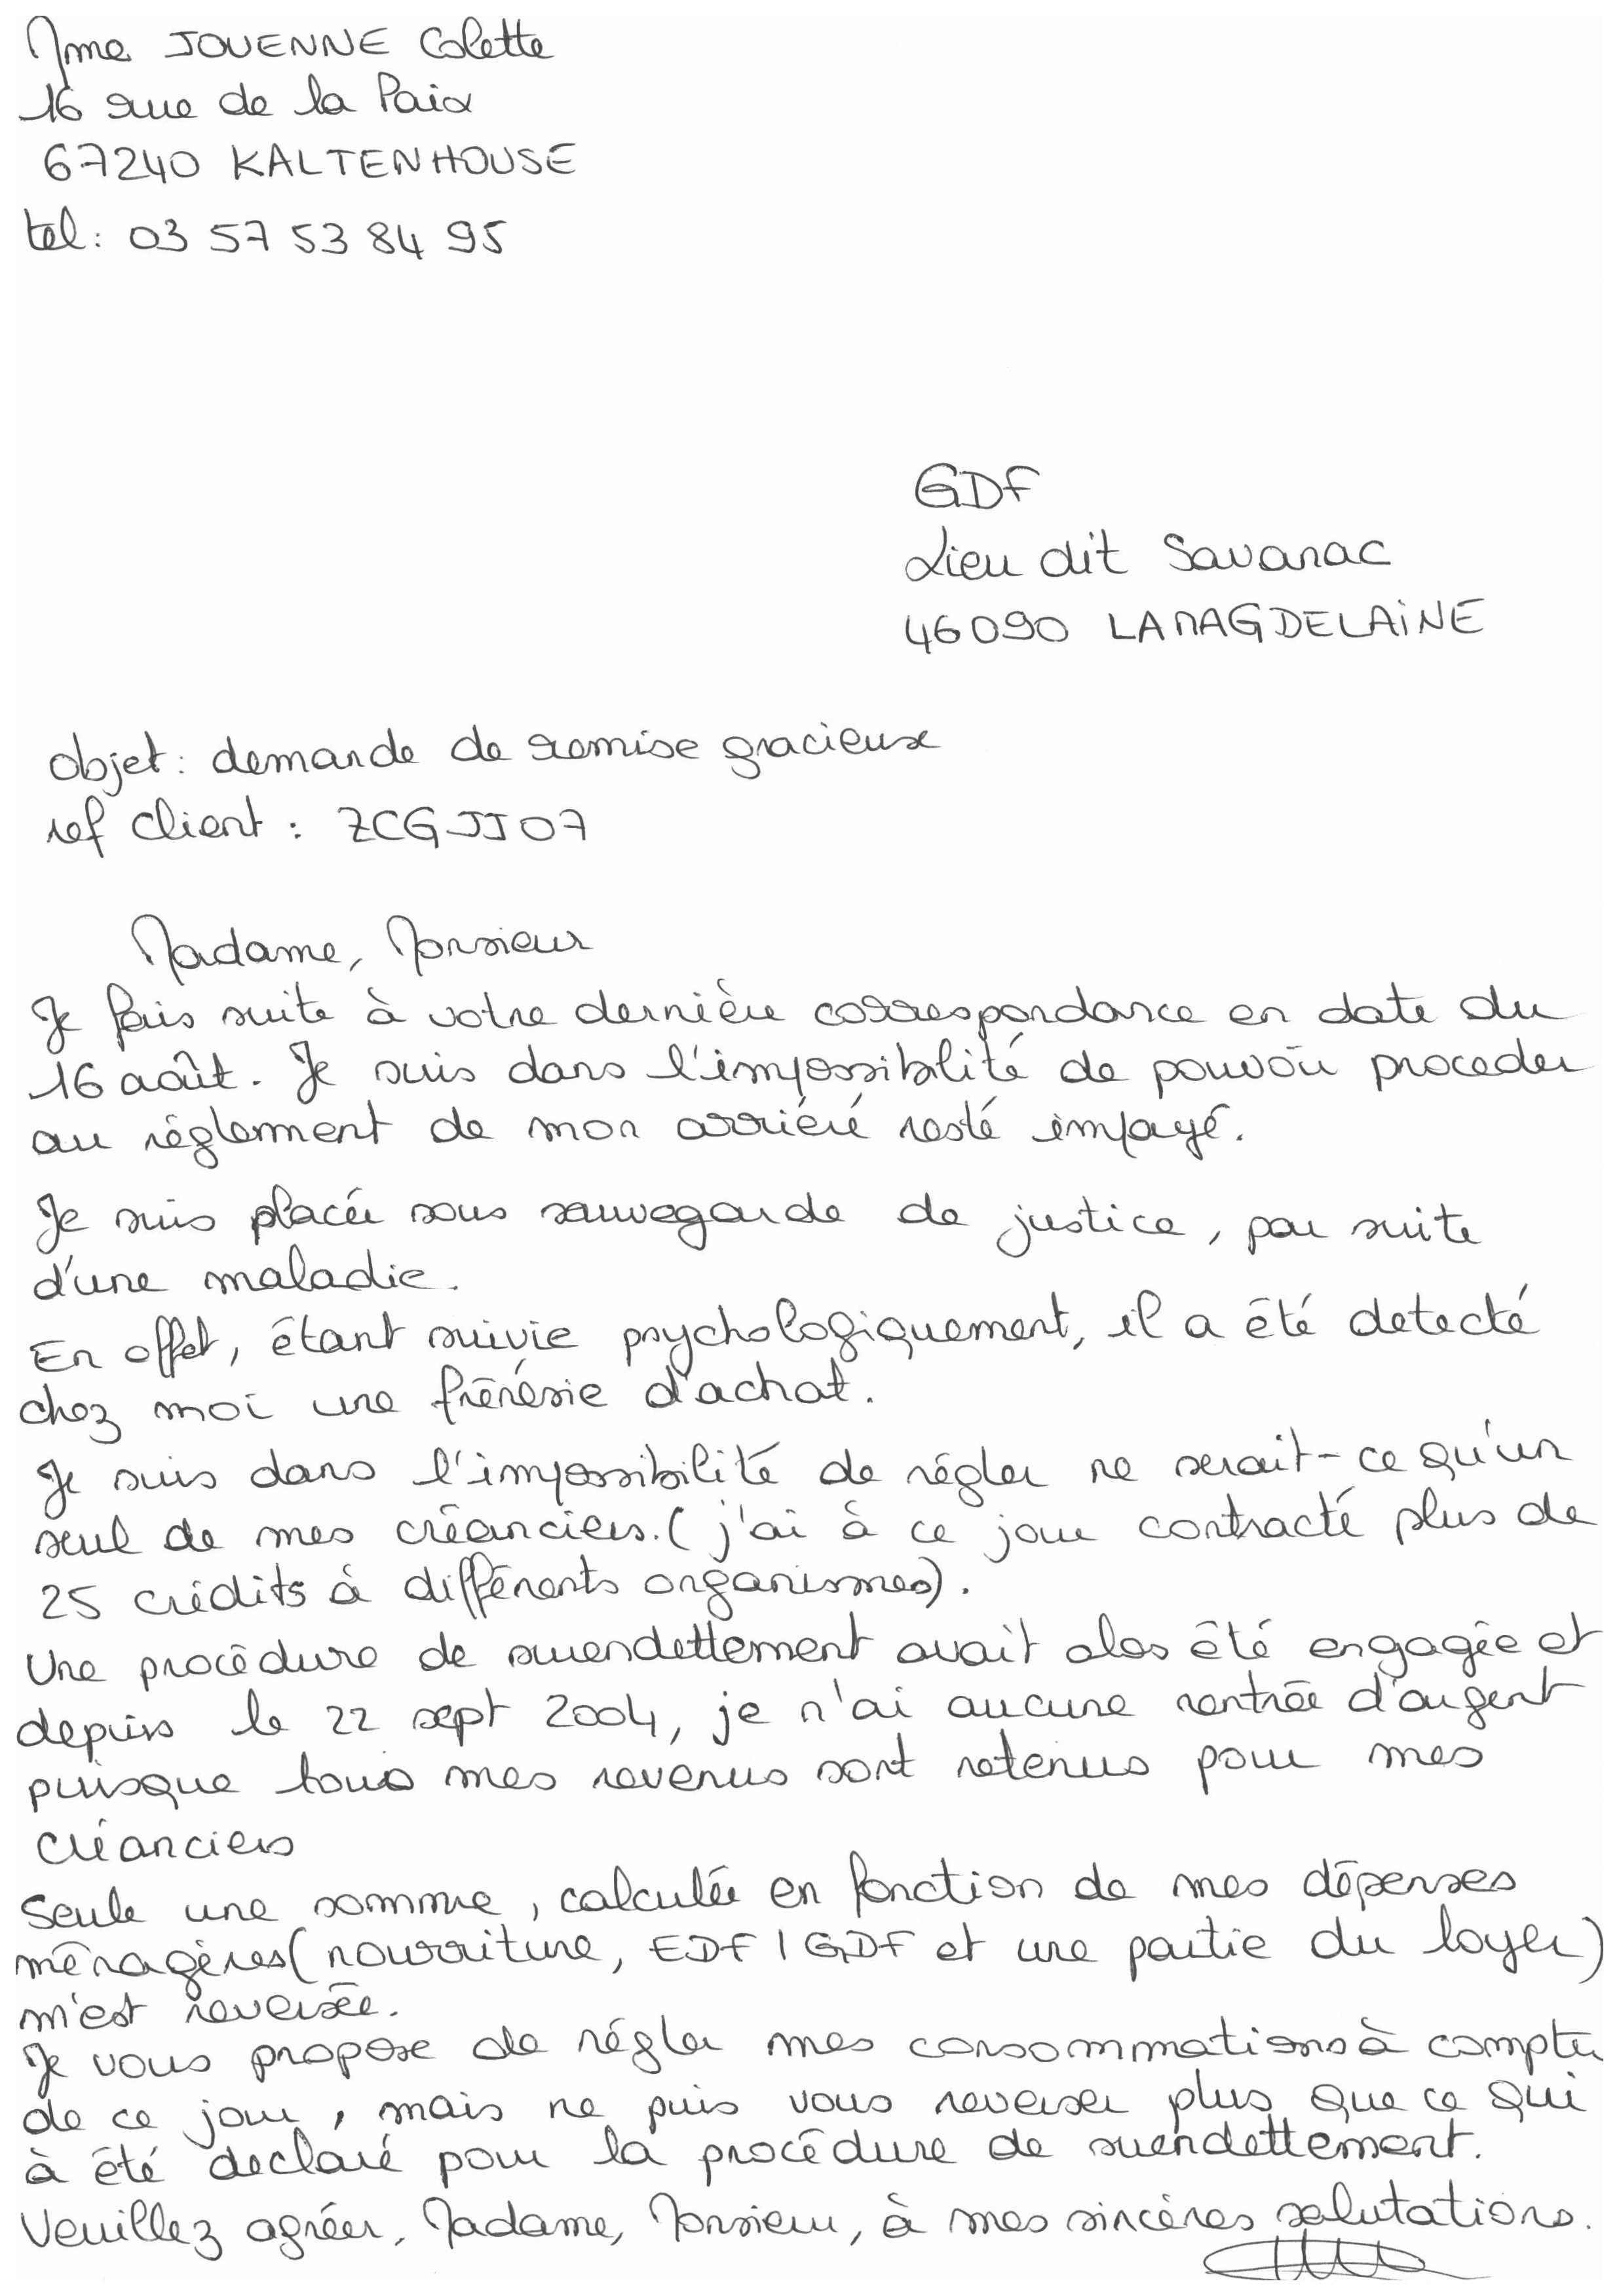 Mme JOUENNE Colette
16 rue de la Paix
67240 KALTENHOUSE
tel: 03 57 53 84 95
GDF
Lieu dit Savanac
46090 LAMAGDELAINE
objet: demande de remise gracieuse
ref client : ZCGJJ07
Madame, Monsieur
Je fais suite à votre dernière correspondance en date du
16 août. Je suis dans l'impossibilité de pouvoir proceder
au réglement de mon arriéré resté impayé.
Je suis placée sous sauvegarde de justice, par suite
d'une maladie.
En effet, étant suivie psychologiquement, il a été detecté
chez moi une frénésie d'achat.
Je suis dans l'impossibilité de régler ne serait-ce qu'un
seul de mes créanciers. (j'ai à ce jour contracté plus de
25 crédits à différents organismes).
Une procédure de surendettement avait alos été engagée et
depuis le 22 sept 2004, je n'ai aucune rentrée d'argent
puisque tous mes revenus sont retenus pour mes
créanciers
Seule une somme, calculée en fonction de mes dépenses
ménagères (nourriture, EDF / GDF et une partie du loyer)
m'est reversée.
Je vous propose de régler mes consommations à compter
de ce jour, mais ne puis vous reverser plus que ce qui
à été declaré pour la procédure de surendettement.
Veuillez agréer, Madame, Monsieur, à mes sincères salutations.